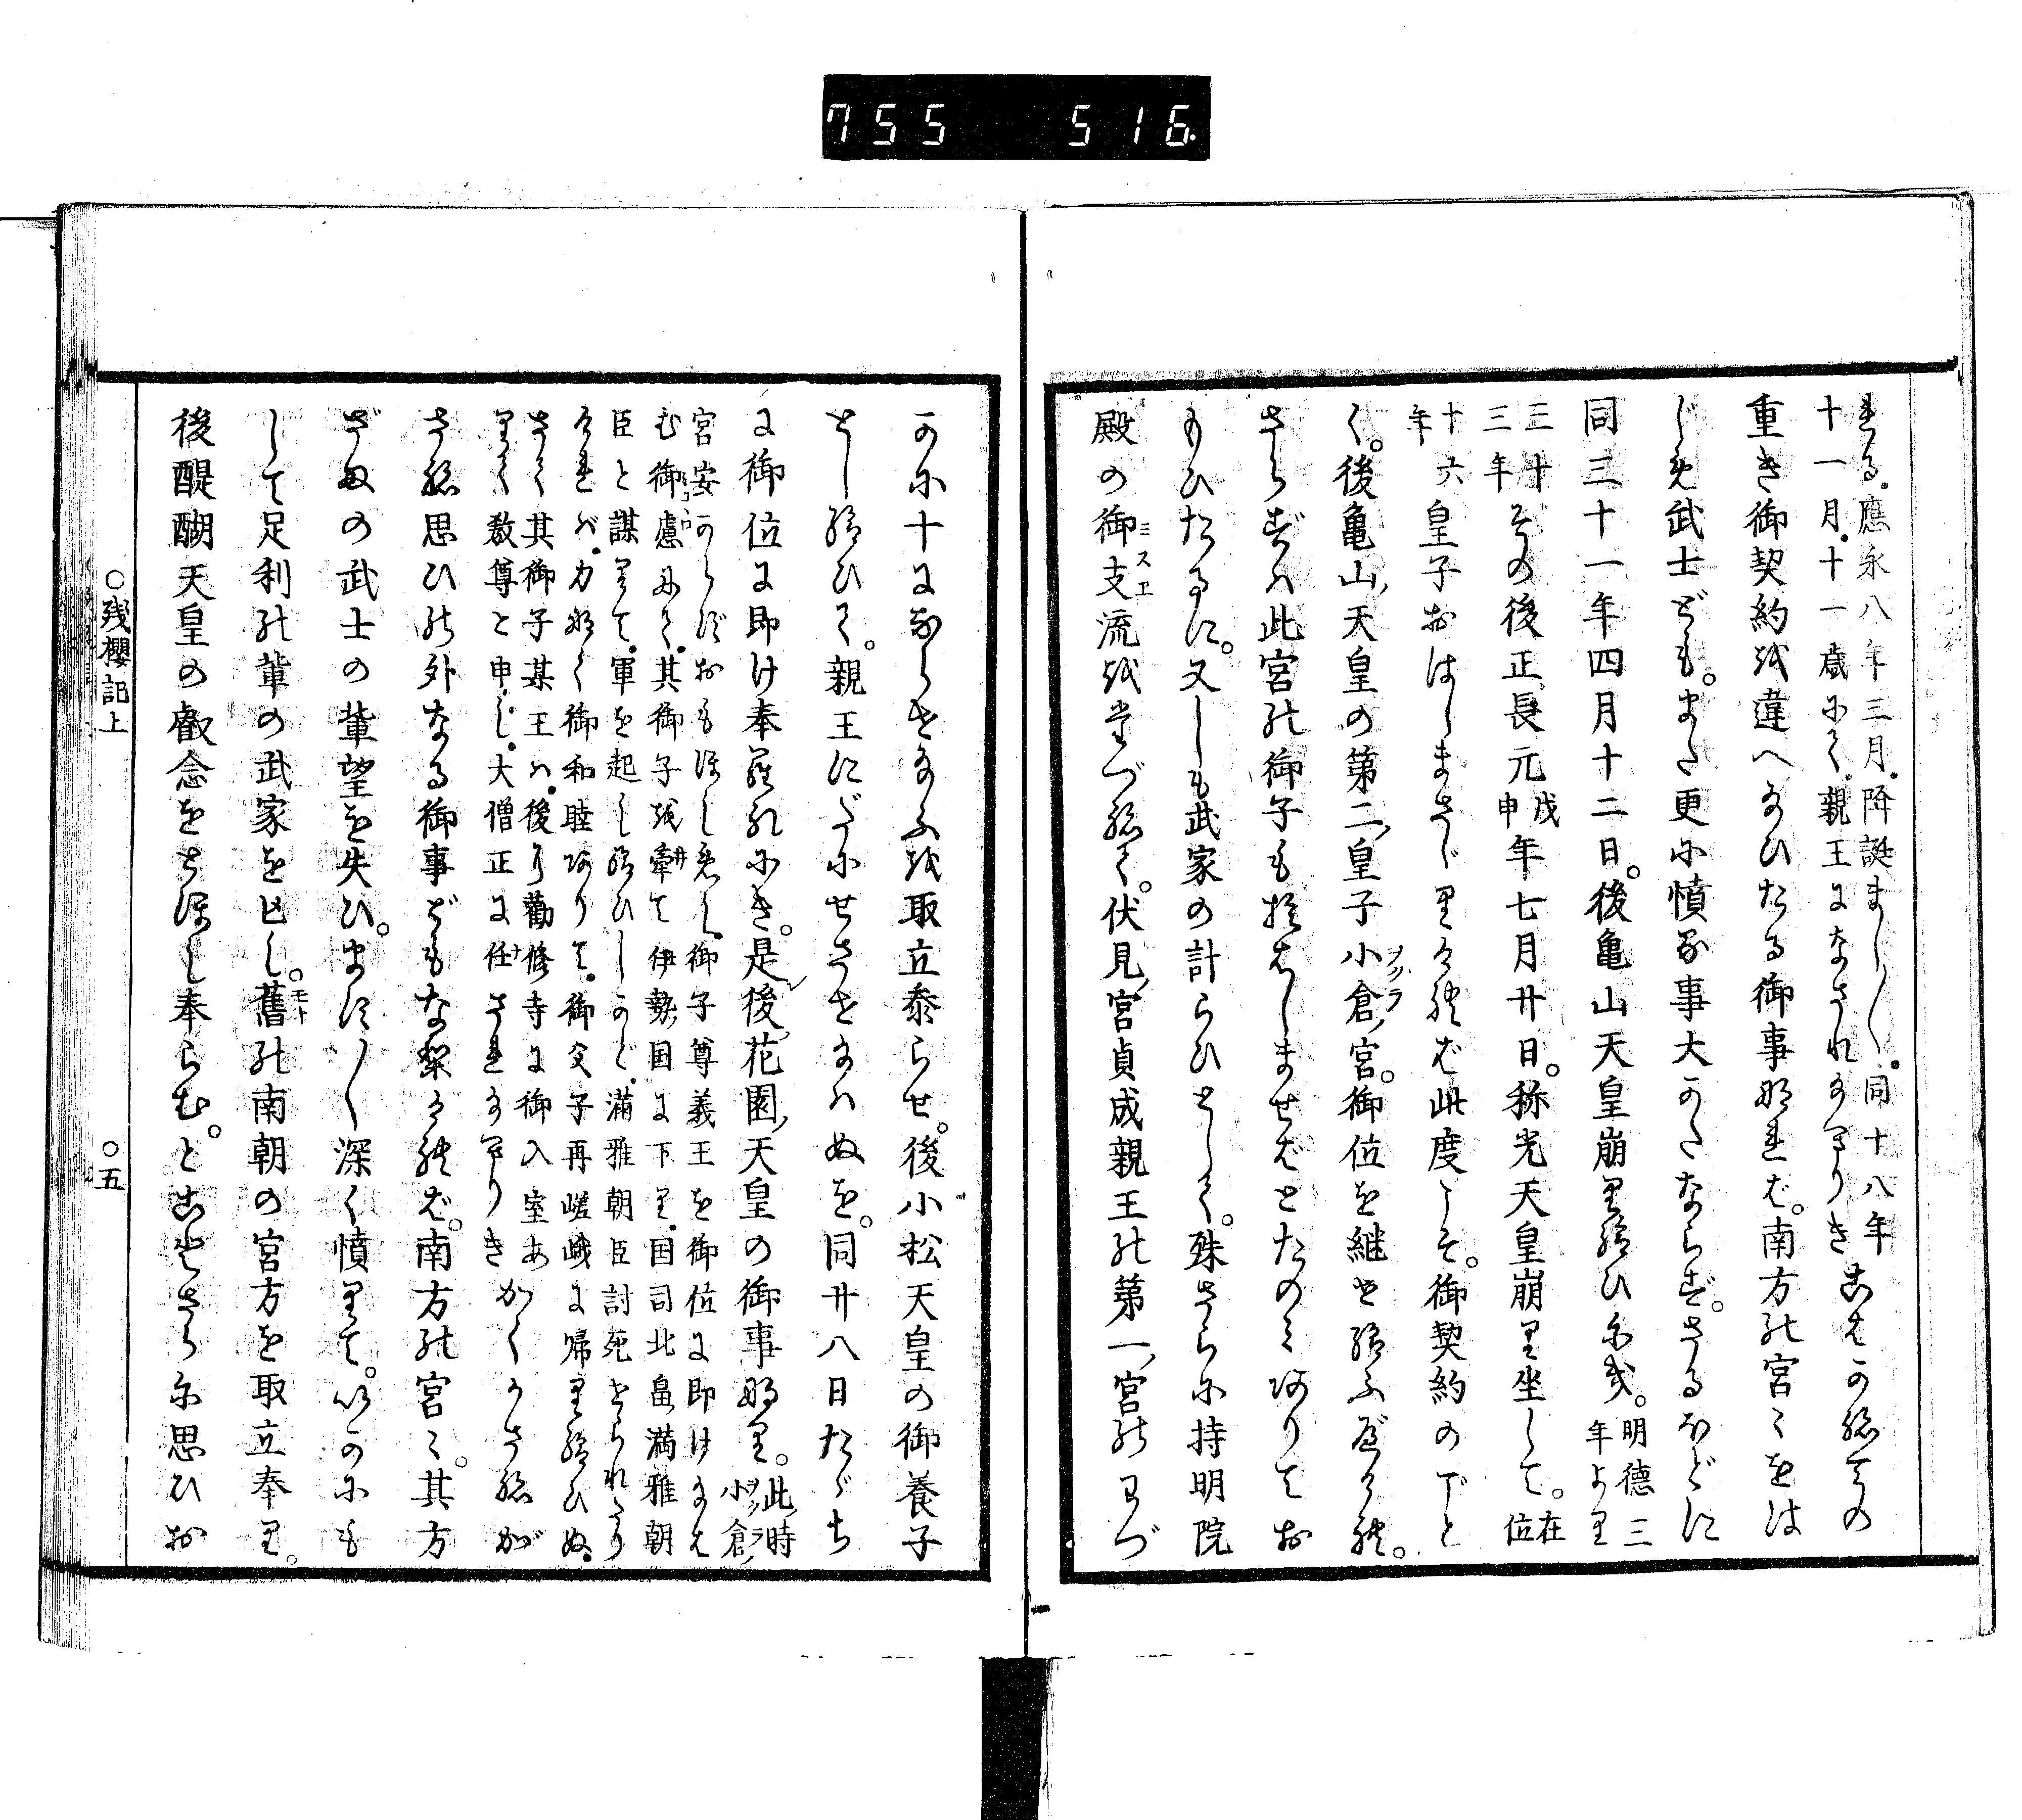 755 516
れる。應永八年三月。降誕まし〳〵。同十八年
十一月。十一歳にて。親王になされたまへりき
こはかねての
重き御契約を違へたまひたる御事なれば。南方の宮〻をは
じめ武士ども。また更に憤る事大かたならず。さるほどに
同三十一年四月十二日。後亀山天皇崩り給ひにき。
明德三
年より
三十
三年
その後正長元
戊
申
年七月廿日。称光天皇崩り坐して。
在
位
十六
年
皇子おはしまさゞりければ此度こそ。御契約の
く。後亀山ノ天皇の第二ノ皇子小倉ノ宮。御位を継せ給ふべけれ。
ヲグラ
さらずは此宮の御子もおはしませばとたのみありてお
もひたるに。又しも武家の計らひとして。殊さらに持明院
殿の御支流をたづねて。伏見ノ宮貞成親王の第一ノ宮のわづ
ミスヱ
かに十にならせたまふを取立泰らせ。後小松天皇の御養子
とし給ひて。親王にだにせさせたまはぬを。同廿八日たゞち
に御位に即け奉られにき。是レ後ノ花園ノ天皇の御事なり。
此ノ時
小倉ノ
ヲグラ
宮安からずおもほし忍し。御子尊義王を御位に即けたまは
む御慮にて。其御子を率て伊勢ノ国に下り。国司北畠ノ満雅朝
臣と謀りて。軍を起し給ひしかど。満雅朝臣討死せられたり
ければ。力なく御和睦ありて。御父子再嵯峨に帰り給ひぬ。
さて其御子某王は。後に勸修寺に御入室あ
りて教尊と申し。大僧正に任されたまへりき
かくかさねが
さね思ひの外なる御事どもなりければ。南方の宮〻。其方
ざまの武士の輩望を失ひ。ます〳〵深く憤りて。いかにも
して足利の輩の武家を亡し。舊の南朝の宮方を取立奉り。
モト
後醍醐天皇の叡念をとほし奉らむ。とことさらに思ひお
○残櫻記上
○五